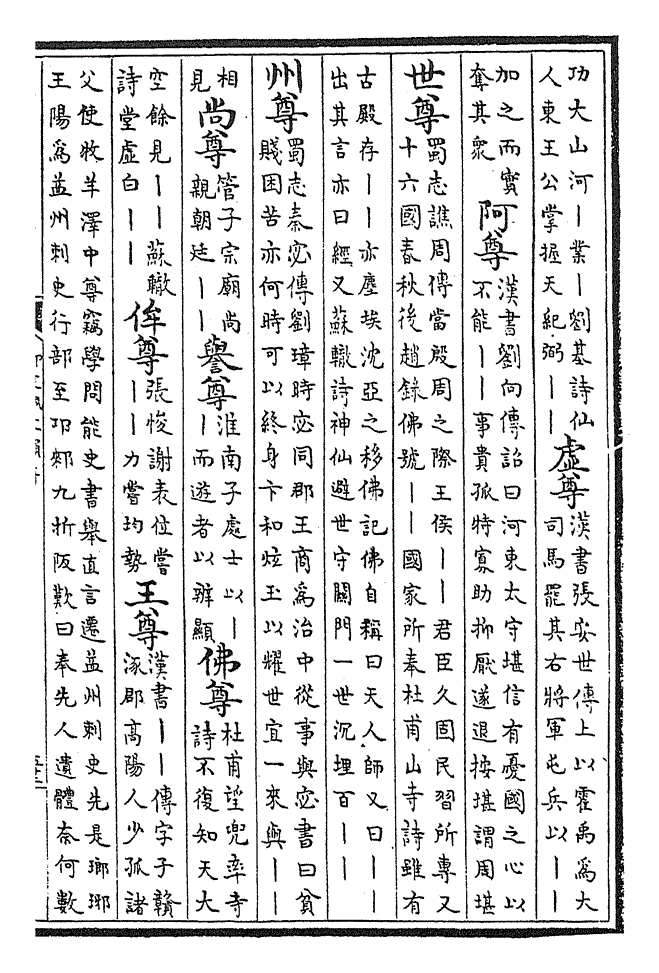 功大山河｜業｜劉基詩仙人東王公掌握天紀弼｜｜虛尊漢書張安世傳上以霍禹為大司馬罷其右將軍屯兵以｜｜
加之而實奪其衆阿尊漢書劉向傳詔曰河東太守堪信有憂國之心以不能｜｜事貴孤特寡助抑厭遂退按堪謂周堪
世尊蜀志譙周傳當殷周之際王侯｜｜君臣久固民習所專又十六國春秋後趙錄佛號｜｜國家所奉杜甫山寺詩雖有
古殿存｜｜亦塵埃沈亞之移佛記佛自稱曰天人師又曰｜｜｜出其言亦曰經又蘇轍詩神仙避世守關門一世沉埋百｜｜
州尊蜀志秦宓傳劉璋時宓同郡王商為治中從事與宓書曰貧賤困苦亦何時可以終身卞和炫玉以耀世宜一來與｜｜
相見尚尊管子宗廟尚親朝廷｜｜譽尊淮南子處士以｜｜而遊者以辨顯佛尊杜甫望兜率寺詩不復知天大
空餘見｜｜蘇轍詩堂虛白｜｜侔尊張悛謝表位嘗｜｜力嘗均勢王尊漢書｜｜傳字子贛涿郡高陽人少孤諸
父使牧羊澤中尊竊學問能史書舉直言遷益州刺史先是瑯琊王陽爲益州刺史行部至邛郲九折阪歎曰奉先人遺體奈何數